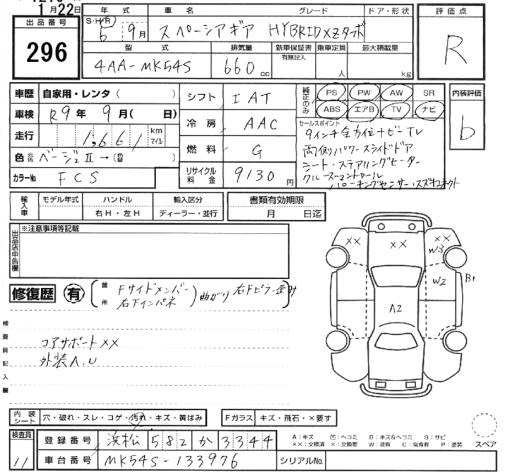 1月22日
出品番号
296
年式 車名 グレード ドア・形状
S・H・R
6年 9月 スペーシアギア HYBRID XZターボ
型式 排気量 新車保証書 乗車定員 最大積載量
有無記入
4AA-MK54S 660cc 人 kg
評価点
R
車歴 自家用・レンタ( )
車検 R9年 9月( 日)
走行 1,661 km マイル
色 ベージュⅡ→(
カラーNo FCS
シフト IAT
冷房 AAC
燃料 G
リサイクル料金 9130円
純正のみ PS PW AW SR
ABS エアB TV ナビ
セールスポイント
9インチ全方位ナビTV
両側パワースライドドア
シート・ステアリングヒーター
クルーズコントロール
パーキングセンサー・スズキコネクト
内装評価
b
輸入車 モデル年式 ハンドル 輸入区分
右H・左H ディーラー・並行
書類有効期限
月 日迄
出品店申告欄
※注意事項等記載
修復歴 有
箇所
Fサイドメンバー
右Fインパネ
曲がり 右Fピラー歪み
検査員記入欄
コアサポートXX
外装A.U
XX XX XX
W3
W2 B1
A2
内装シート 穴・破れ・スレ・コゲ・汚れ・キズ・黄ばみ
Fガラス キズ・飛石・X要す
検査員
11
登録番号 浜松 582 か 3344
車台番号 MK54S-133976 シリアルNo.
A:キズ U:ヘコミ B:キズ&ヘコミ S:サビ
XX:交換済 X:交換要 W:塗装 C:腐食 P:塗装
スペア